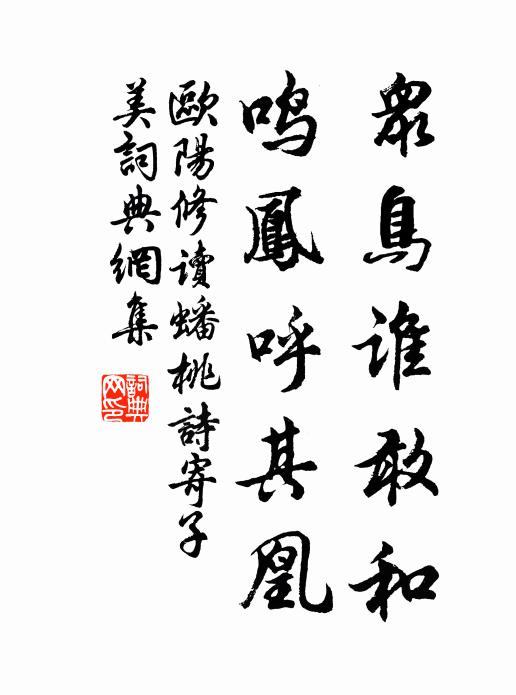 眾鳥誰敢和
鳴鳳呼其凰
歐陽修讀蟠桃詩寄子
美詞典網集
詞典
网印